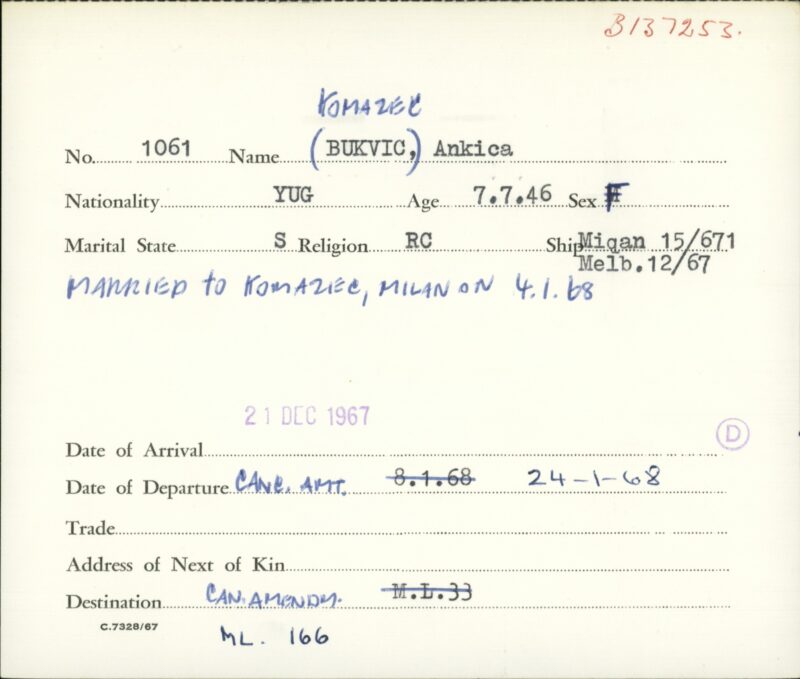 B137253.
KOMAZEC
No. 1061 Name (BUKVIC,) Ankica
Nationality YUG Age 7.7.46 Sex F
Marital State S Religion RC Ship Miqan 15/671
Melb.12/67
MARRIED to KOMAZEC, MILAN ON 4.1.68
21 DEC 1967
D
Date of Arrival
Date of Departure CANC. AMT. 8.1.68 24-1-68
Trade
Address of Next of Kin
Destination CAN. AMENDM. M.L.33
C.7328/67
ML. 166